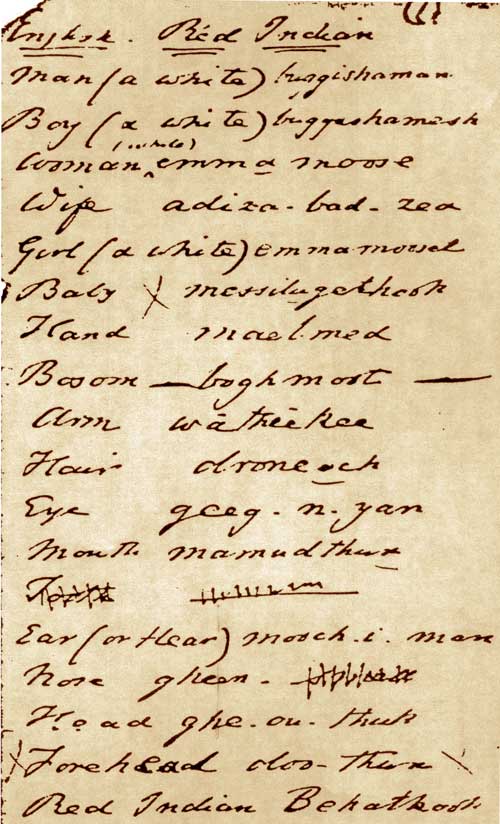 English. Red Indian
Man (a white) bugishaman
Boy (a white) buggishamesh
Woman (white) emma moose
Wife adiza-bad-zea
Girl (a white) emmamoosel
Baby X messilugethook
Hand maelmed
Bosom — boghmoot —
Arm wātheēkee
Hair droneoch
Eye geeg-n-yan
Mouth mamudthun
Ear (or Hear) mooch-i-man
Nose gheen-
Head ghe-ou-thuk
X Forehead doo-thun \
Red Indian Behathook